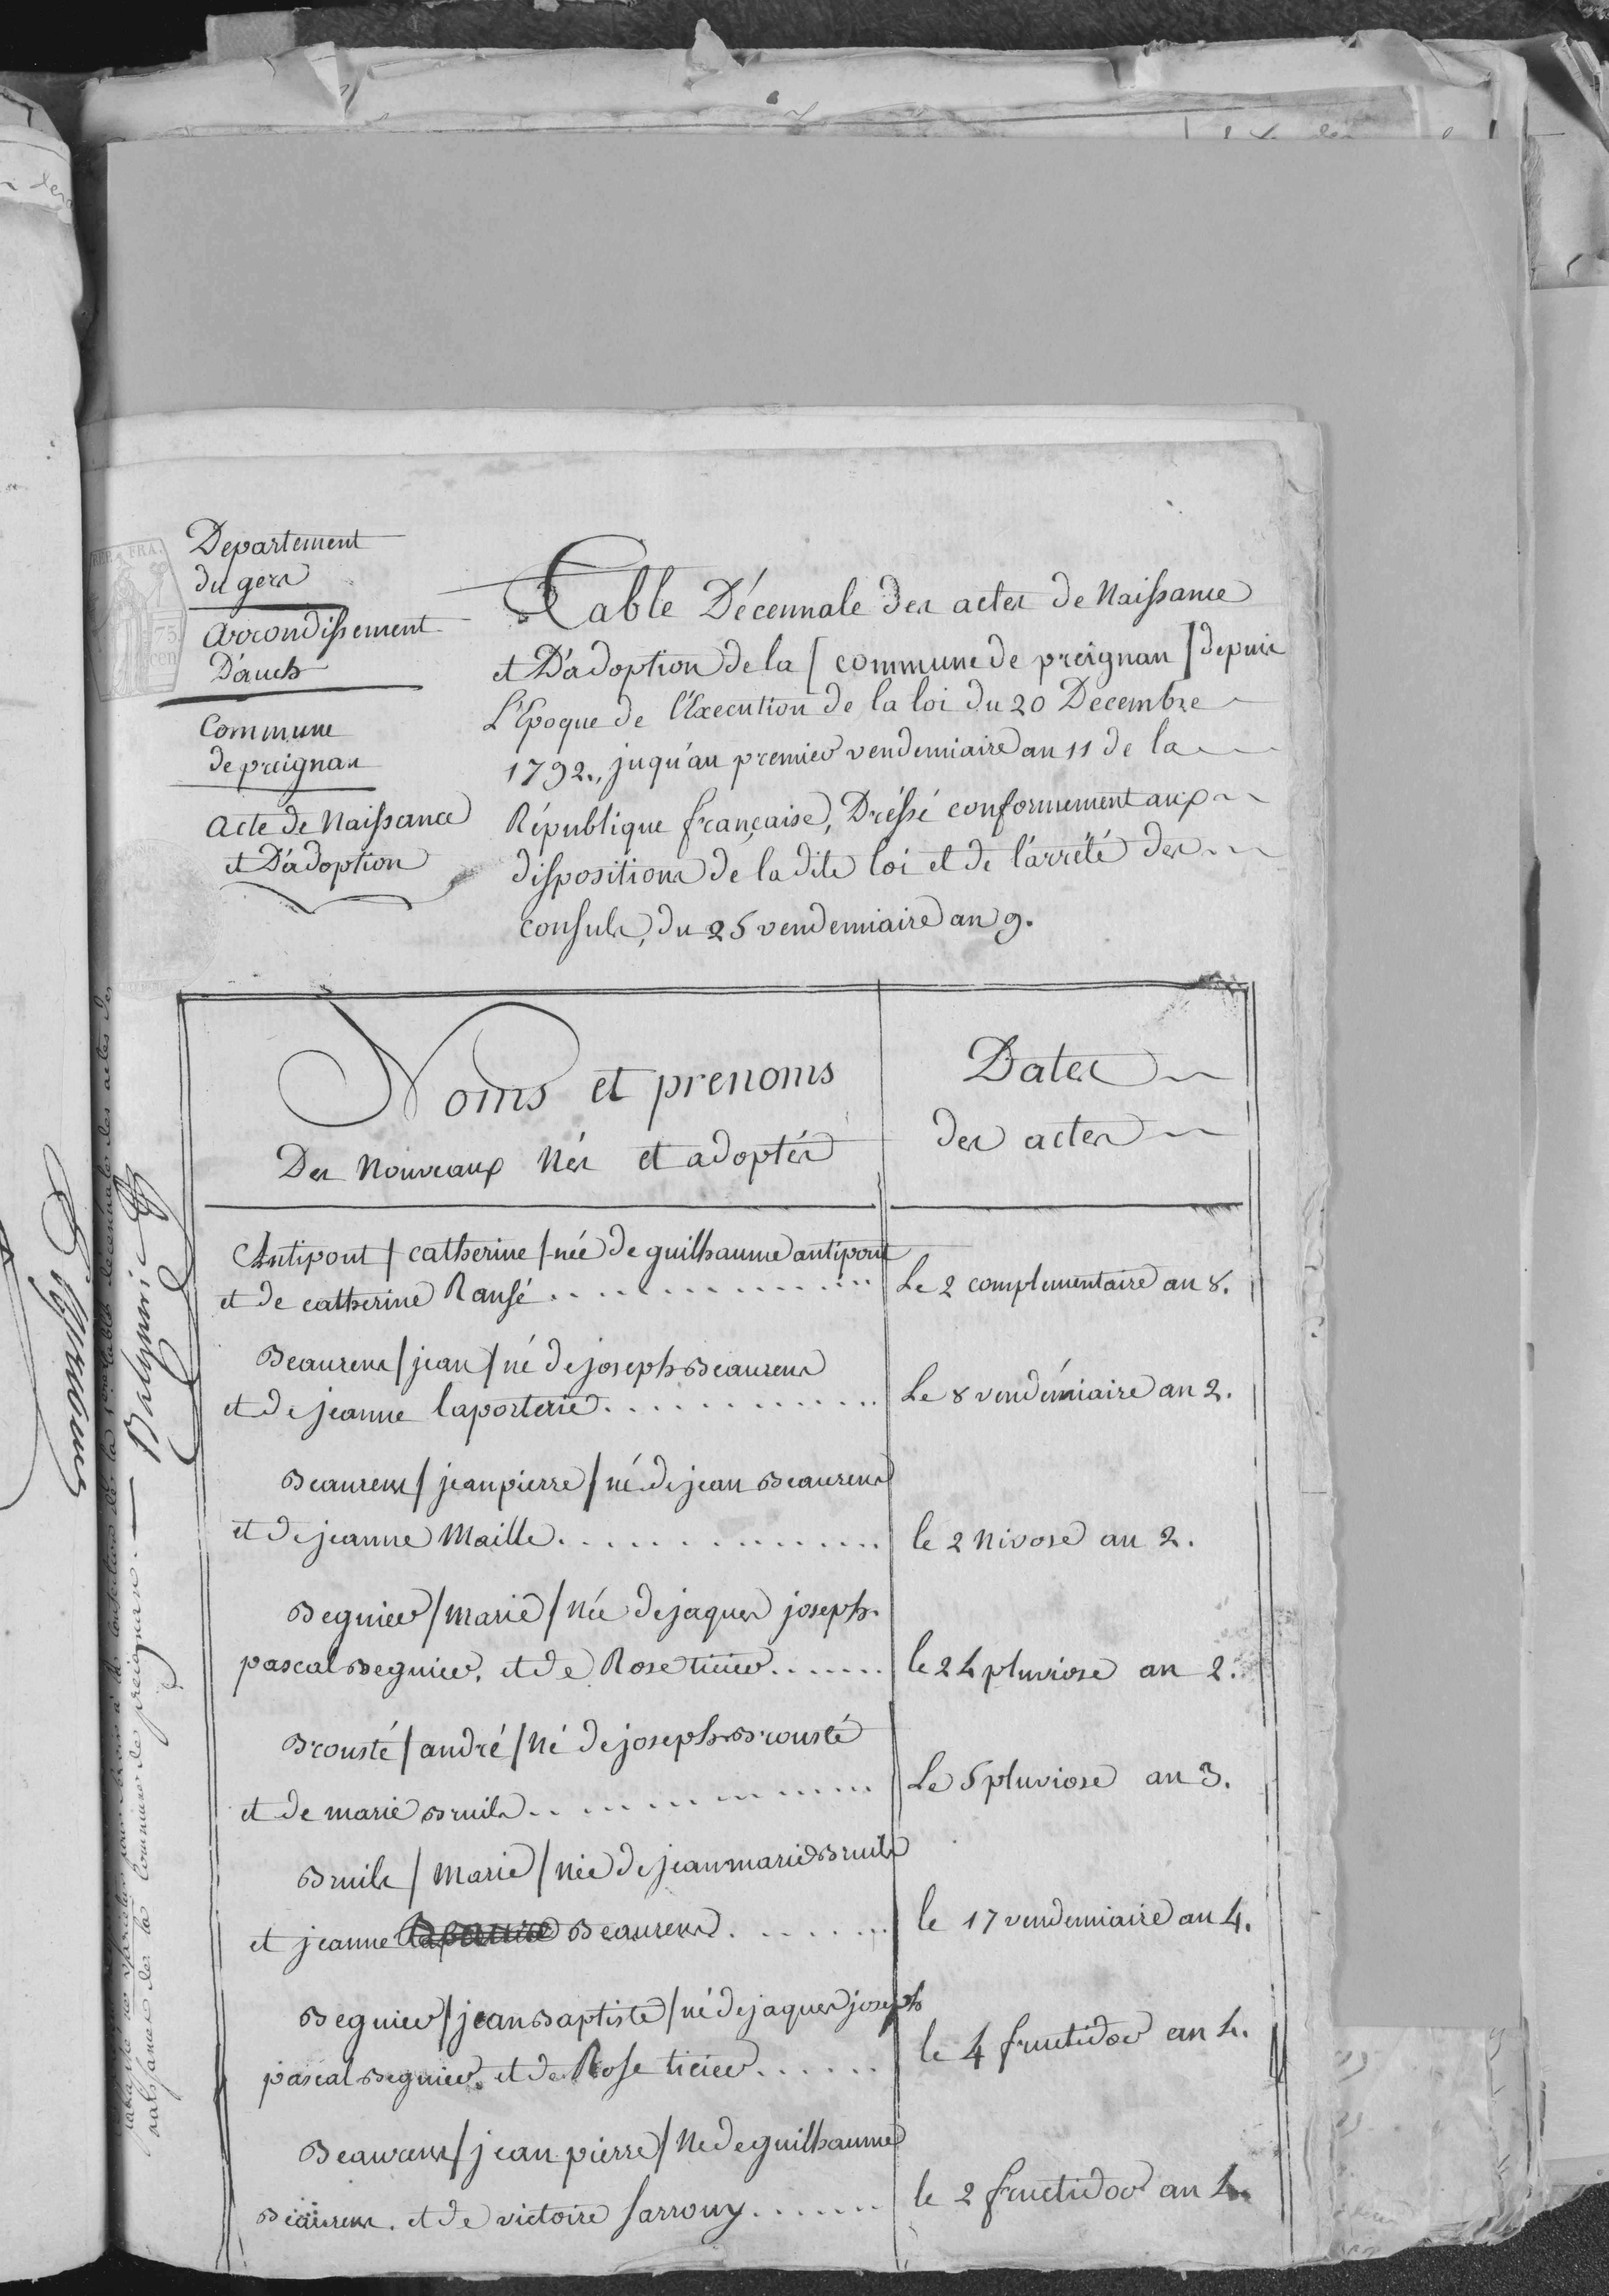 Departement
du gers
arrondissement
D'auch
Commune
de preignan
acte de Naissance
et D'adoption
Table Décennale des actes de Naissance
et D'adoption de la [ commune de preignan ] depuis
L'Epoque de l'Execution de la loi du 20 Decembre
1792., juqu'au premier vendemiaire an 11 de la
République française, Dréssé conformement aux
dispositions de la dite loi et de l'arrété des
consuls, du 25 vendemiaire an 9.
Noms et prenoms
Des Nouveaux Nés et adoptés
Dates
des actes
Antipout / catherine / née de guilhaume antipout
et de catherine Ransé
Le 2 complementaire an 8.
Beaurens / jean / né de joseph Beaurens
et de jeanne laporterie
Le 8 vendémiaire an 2.
Beaurens / jean pierre / né de jean Beaurens
et de jeanne Maille
le 2 Nivose an 2.
Begnier / Marie / Née de jaques joseph
pascal Begnier, et de Rose
le 24 pluviose an 2.
Brousté / andré / Né de joseph Brousté
et de marie Bruils
Le 5 pluviose an 3.
Bruils / Marie / Née de jean marie Bruils
et jeanne Beaurens
le 17 vendemiaire an 4.
Begnier / jean Baptiste / né de jaques joseph
pascal Begnier, et de Rose
le 4 fructidor an 4.
Beaurens / jean pierre / Né de guilhaume
Beaurens. et de victoire Sarrouy
le 2 fructidor an 4.